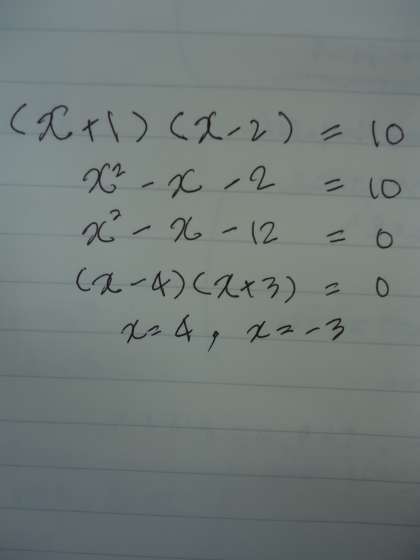 (x+1)(x-2) = 10
x² - x - 2 = 10
x² - x - 12 = 0
(x-4)(x+3) = 0
x=4, x=-3